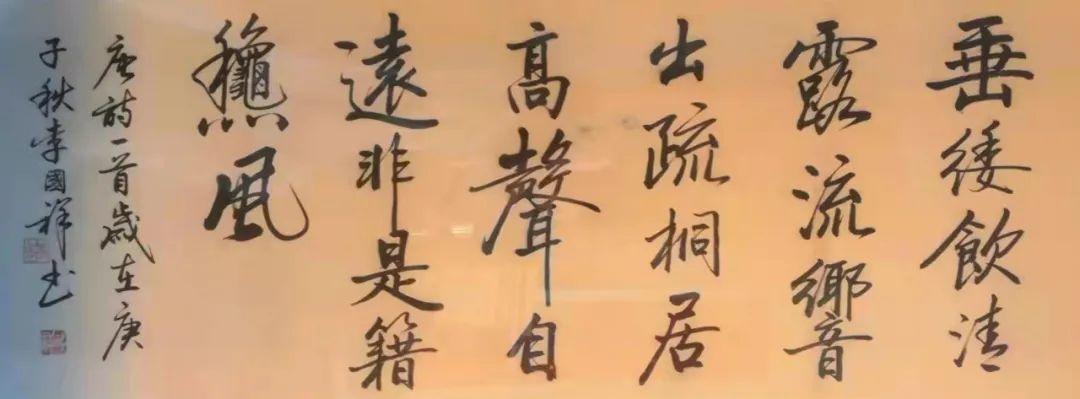 垂緌飲清
露流響
出疏桐居
高聲自
遠非是籍
龝風
唐詩一首歲在庚
子秋李國祥书